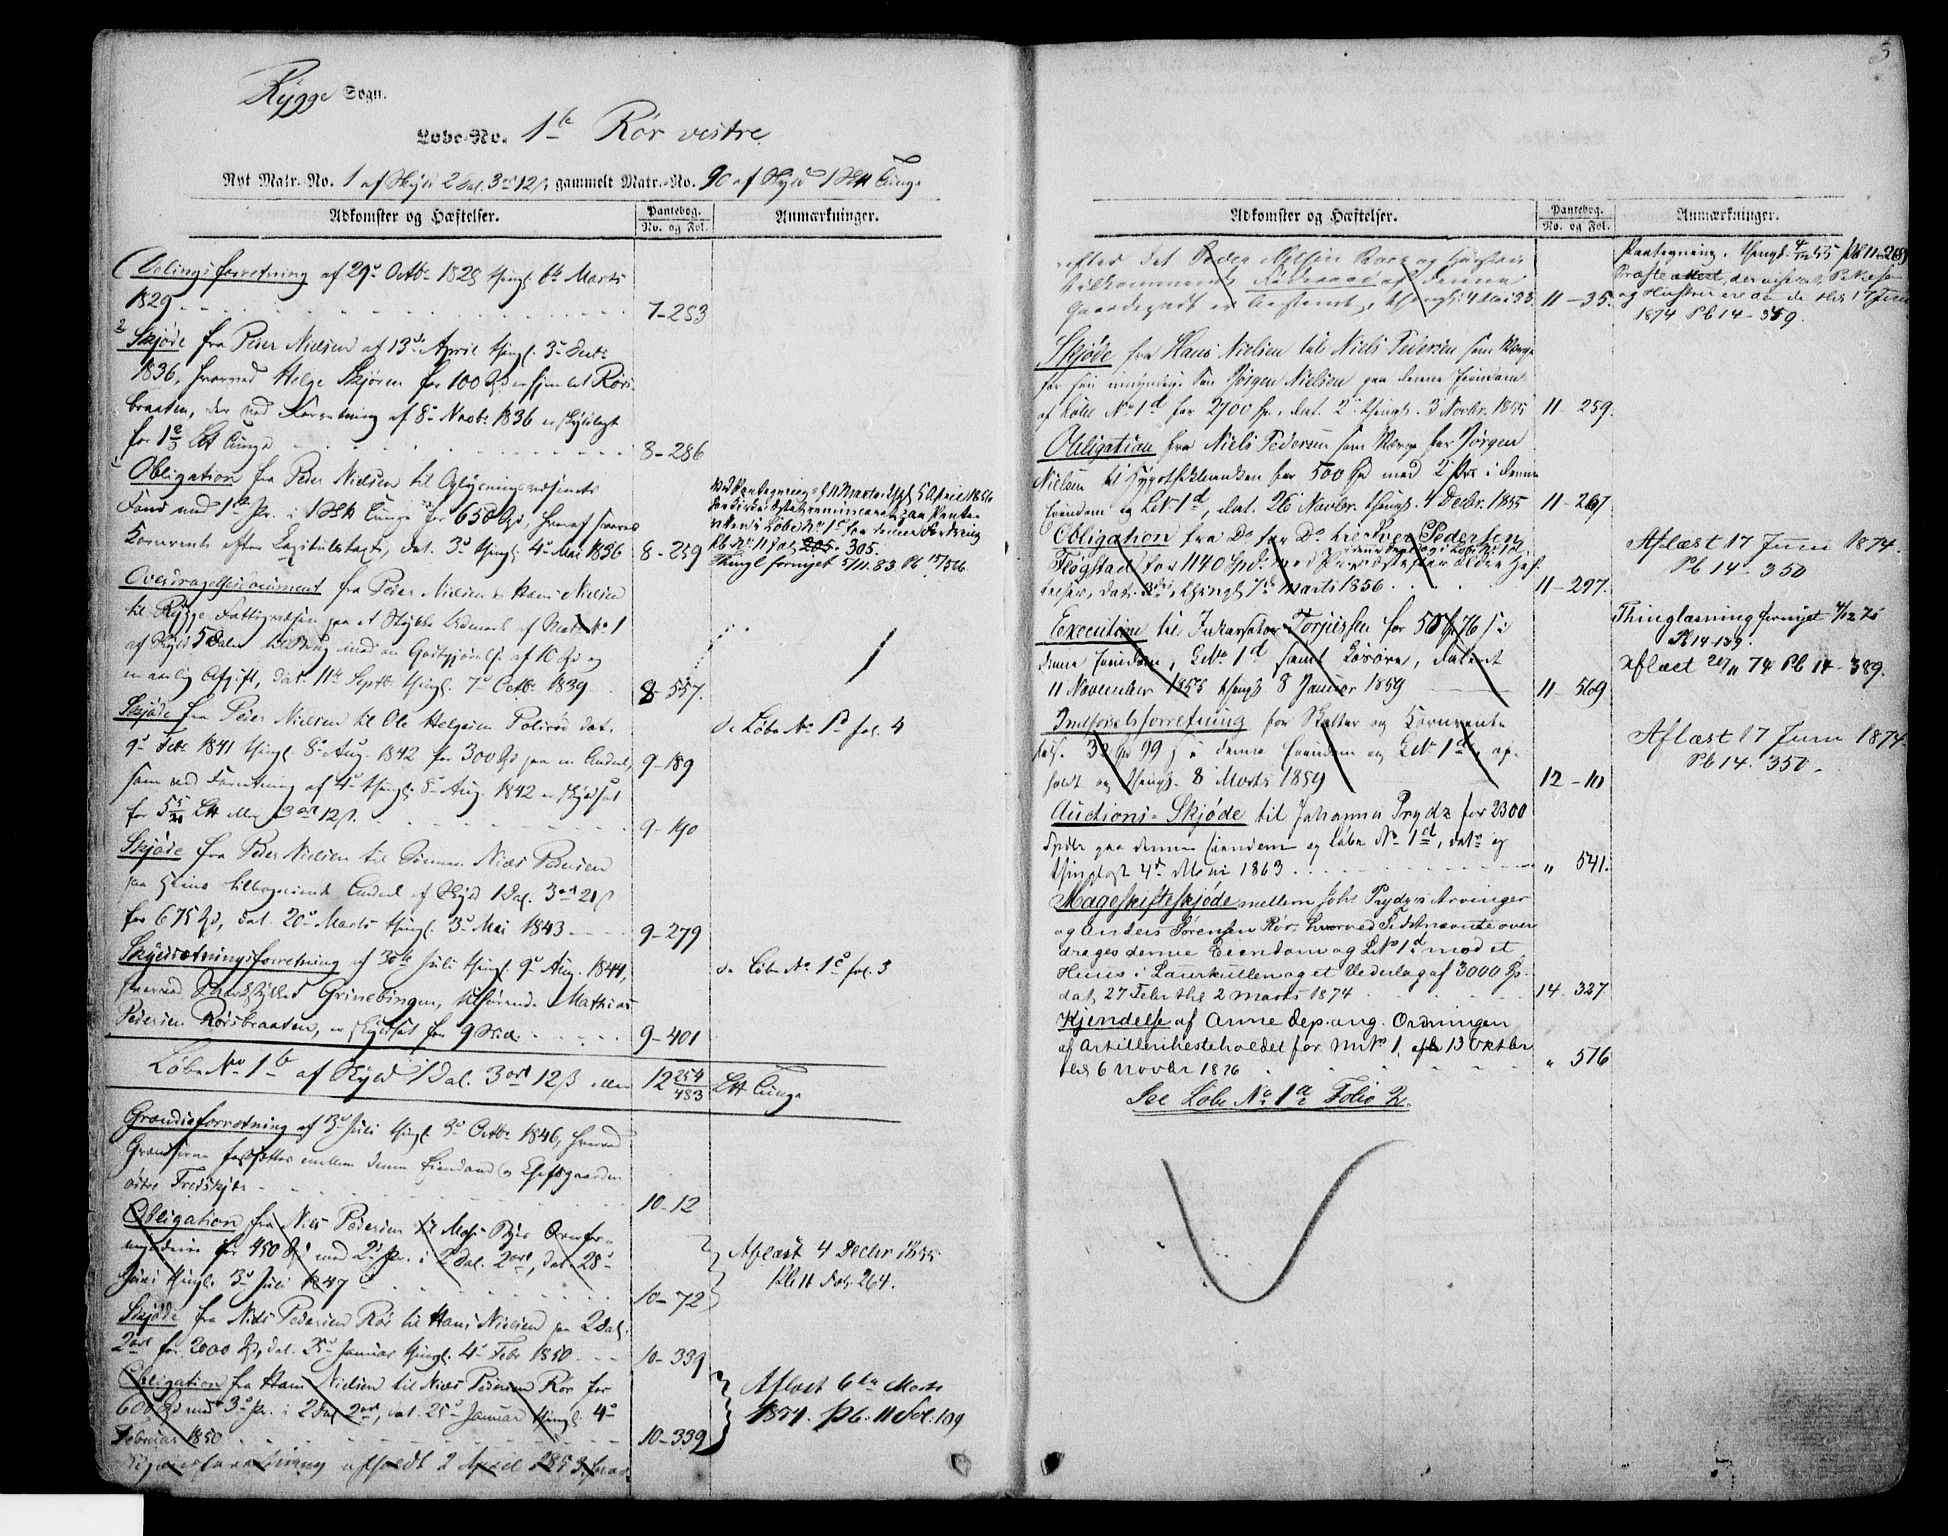 Rygge Sogn.
Løbe-No. 1b Rör vestre.
Nyt Matr.-No. 1 af Skyld 2 Dal. 3 ort 12 ß, gammelt Matr.-No. 90 af Skyld 1 Sk℔ Tunge
Adkomster og Hæftelser.
Pantebog.
No. og Fol.
Anmærkninger.
Delingsforretning af 29de Octbr 1828 thingl. 6te Marts
1829
7-253
Skjøde fra Peder Nielsen af 13de April thingl. 3de
1836, hvorved Helge Skjøren for 100 Spd er hjemlet Rörs-
braaten, der ved Forretning af 8de Novbr 1836 er skyldlagt
for 1 2/3 L℔ Tunge
8-286
Obligation fra Peder Nielsen til Oplysningsvæsenets
Fond med 1ste Pr. i 1 Sk℔ Tunge for 650 Spd, hvoraf svares
Kornrente efter Capitelstaxt, dat. 3de thingl. 4de Mai 1836
8-259
Ved Paategning af 11 Marts thgl. 5 April 1856
Løbe No 1c for denne Forhæftning
Pb. No 11 Fol. 205. 305.
Thingl fornyet 5/11. 83 Pb 15/566
Overdragelsesdocument fra Peder Nielsen & Hans Nielsen
til Rygge Fattigvæsen paa et Stykke Udmark af Matr. No 1
af Skyld 5 Daler til Brug mod en Godtgjørelse af 10 Spd og
en aarlig Afgift, dat. 11te Septbr thingl. 7de Octbr 1839
8-557.
Skjøde fra Peder Nielsen til Ole Helgesen Poliröd dat.
9de Febr 1841 thingl. 8de Aug. 1842 for 300 Spd paa en Andeel,
9-189
som ved Forretning af 4de thingl. 8de Aug. 1842 er skyldsat
for 5 5/20 L℔ eller 3 ort 12 ß.
9-190
de Løbe No 1d fol. 4
Skjøde fra Peder Nielsen til Sönnen Niels Pedersen
paa Hans tilbageværende Andeel af Skyld 1 Dal. 3 ort 21 ß
for 675 Spd, dat. 20de Marts thingl. 3de Mai 1843
9-279
Skyldsætningsforretning af 30te Juli thingl. 9de Aug. 1844,
hvorved Grinebingen, tilhørende Mathias
Pedersen Rörsbraaten, er skyldsat for 9
9-401
de Løbe No 1c fol. 3
Løbe No 1b af Skyld 1 Dal. 3 ort 12 ß eller 12 254/483 L℔ Tunge
Grændseforretning af 3de Juli thingl. 3de Octbr 1846, hvorved
Grændserne fastsættes mellem denne Eiendom & Chefsgaarden
østre Fredskjær
10-12
Obligation fra Niels Pedersen til
for 450 Spd med 2de Pr. i 2 Dal. 2 ort, dat. 28de
Juni thingl. 3de Juli 1847
10-72
Aflæst 4 Decbr 1855
Pb 11 Fol. 264.
Skjøde fra Niels Pedersen Rör til Hans Nielsen paa 2 Dal.
2 ort for 2000 Spd, dat. 25de Januar thingl. 4de Febr 1850
10-339
Obligation fra Hans Nielsen til Niels Pedersen Rör for
600 Spd med 3de Pr. i 2 Dal 2 ort, dat. 25de Januar thingl. 4de
Februar 1850
10-339
Aflæst 6te Marts
1854. Pb. 11 Fol. 109
afholdt 2 April 1853, hvor-
3
Adkomster og Hæftelser.
Pantebog.
No. og Fol.
Anmærkninger.
efter det Peder Nielsen Roer og Hustru
tilkommende Föderaad af denne
Gaardepart er bestemt, thingl. 4 Mai 53.
11-35.
Paategning, thingl. 4/12 55 Pb 11-268
Præsteattest, der viser at P. Nielsen
og Hustru ere døde thl. 17 Juni
1874 Pb 14-349.
Skjøde fra Hans Nielsen til Niels Pedersen som Værge
for sin umyndige Søn Jørgen Nielsen paa denne Eiendom
af Løbe No 1d for 2700 Sp., dat. 2 thingl. 3 Novbr. 1855
11-259.
Obligation fra Niels Pedersen som Værge for Jørgen
Nielsen til Hypothekbanken for 500 Spd med 2 Pr. i denne
Eiendom og L.No 1d, dat. 26 Novbr. thingl. 4 Decbr. 1855
11-267
Obligation fra Do for Do til Iver Pedersen
i denne Eiend. og i Løbe No 1d
Flögstad for 1140 Spd. med Prioritet efter ældre Hæf-
telser, dat. 3die, thingl 7de Marts 1856
11-297.
Aflæst 17 Juni 1874.
Pb 14-350
Execution til Inkassator Torpissen for 50 Sp 76 ß i
denne Eiendom, L.No 1d samt Løsøre, dateret
11 November 1858 thingl. 8 Januar 1859
11-569
Thinglæsning fornyet 4/12 72
Pb 14-139.
Aflæst 20/11 74 Pb 14-389.
Indførselsforretning for Skatter og Kornrente
32 Sp 99 ß i denne Eiendom og L.No 1d, af-
holdt og thingl. 8 Marts 1859
12-10
Aflæst 17 Juni 1874.
Pb 14-350.
Auctions-Skjøde til Johannes Prydz for 2300
Spdlr paa denne Eiendom og Løbe No 1d, dat. og
thinglæst 4de Mai 1863
" 541.
Mageskifteskjøde mellem Johs Prydz's Arvinger
og Anders Sörensen Rör, hvorved Sidstnævnte over
drages denne Eiendom og L.No 1d mod et
Huus i Laurkullen og et Vederlag af 3000 Sp.
dat. 27 Febr thl 2 Marts 1874
14-327
Kjendelse af Arme Dep. ang. Ordningen
af Artillerihesteholdet for MNo 1, afh 13 Oktbr
thl 6 Novbr 1876
" 576
See Løbe No 1a Folio 2.